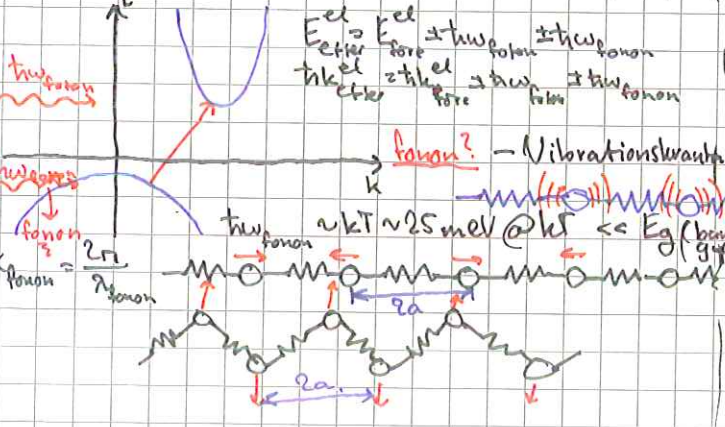 E^el_efter = E^el_före ± ħω_foton ± ħω_fonon
ħk^el_efter = ħk^el_före ± ħω_foton ± ħω_fonon
ħω_foton
k
fonon? - Vibrationskvant
fonon
?
ħω_fonon ~kT ~25 meV @kT << Eg (
k_fonon = 2π / λ_fonon
2a
2a